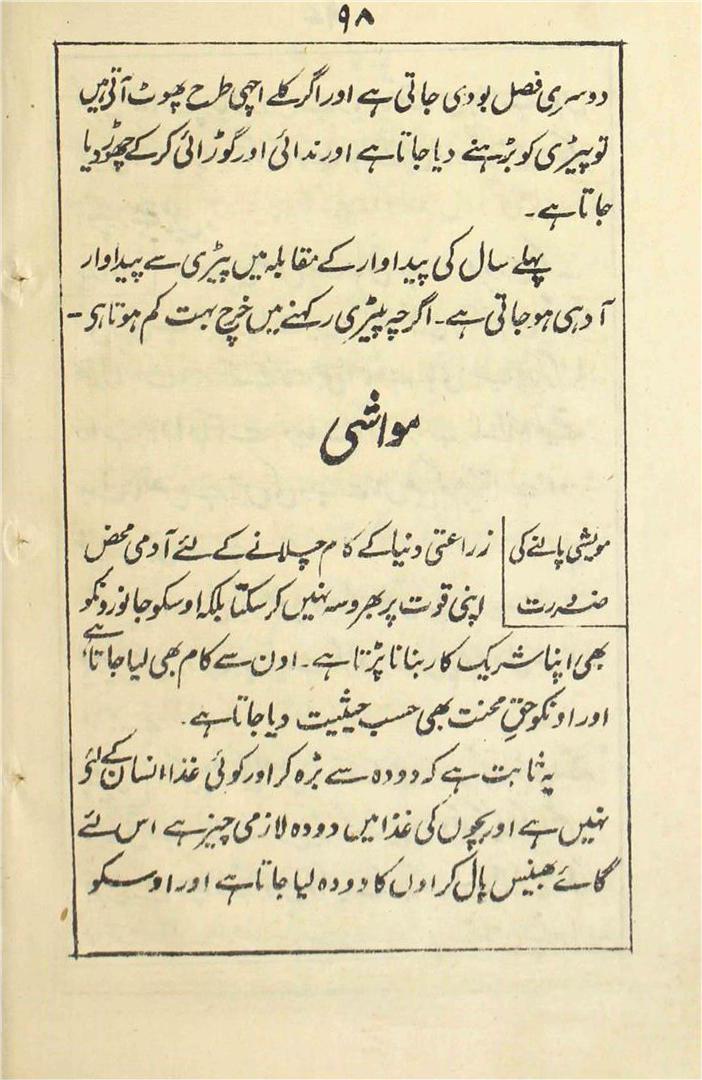 ۹۸
دوسری فصل بودی جاتی ہے اور اگر کلے اچھی طرح پھوٹ آتی ہیں
تو پیڑی کو بڑہنے دیا جاتا ہے اور ندائی اور گوڑائی کرکے چھوڑ دیا
جاتا ہے۔
پہلے سال کی پیداوار کے مقابلہ میں پیڑی سے پیداوار
آدہی ہو جاتی ہے۔ اگرچہ پیڑی رکہنے میں خرچ بہت کم ہوتا ہی۔
مواشی
مویشی پالنے کی
ضرورت
زراعتی دنیا کے کام چلانے کے لئے آدمی محض
اپنی قوت پر بھروسہ نہیں کر سکتا بلکہ اوسکو جانورونکو
بھی اپنا شریک کار بنانا پڑتا ہے۔ اون سے کام بھی لیا جاتا ہے
اور اونکو حقِ محنت بھی حسب حیثیت دیا جاتا ہے۔
یہ ثابت ہے کہ دودہ سے بڑہ کر اور کوئی غذا انسان کے لئے
نہیں ہے اور بچوں کی غذا میں دودہ لازمی چیز ہے اس لئے
گائے بھینس پال کر اوں کا دودہ لیا جاتا ہے اور اوسکو